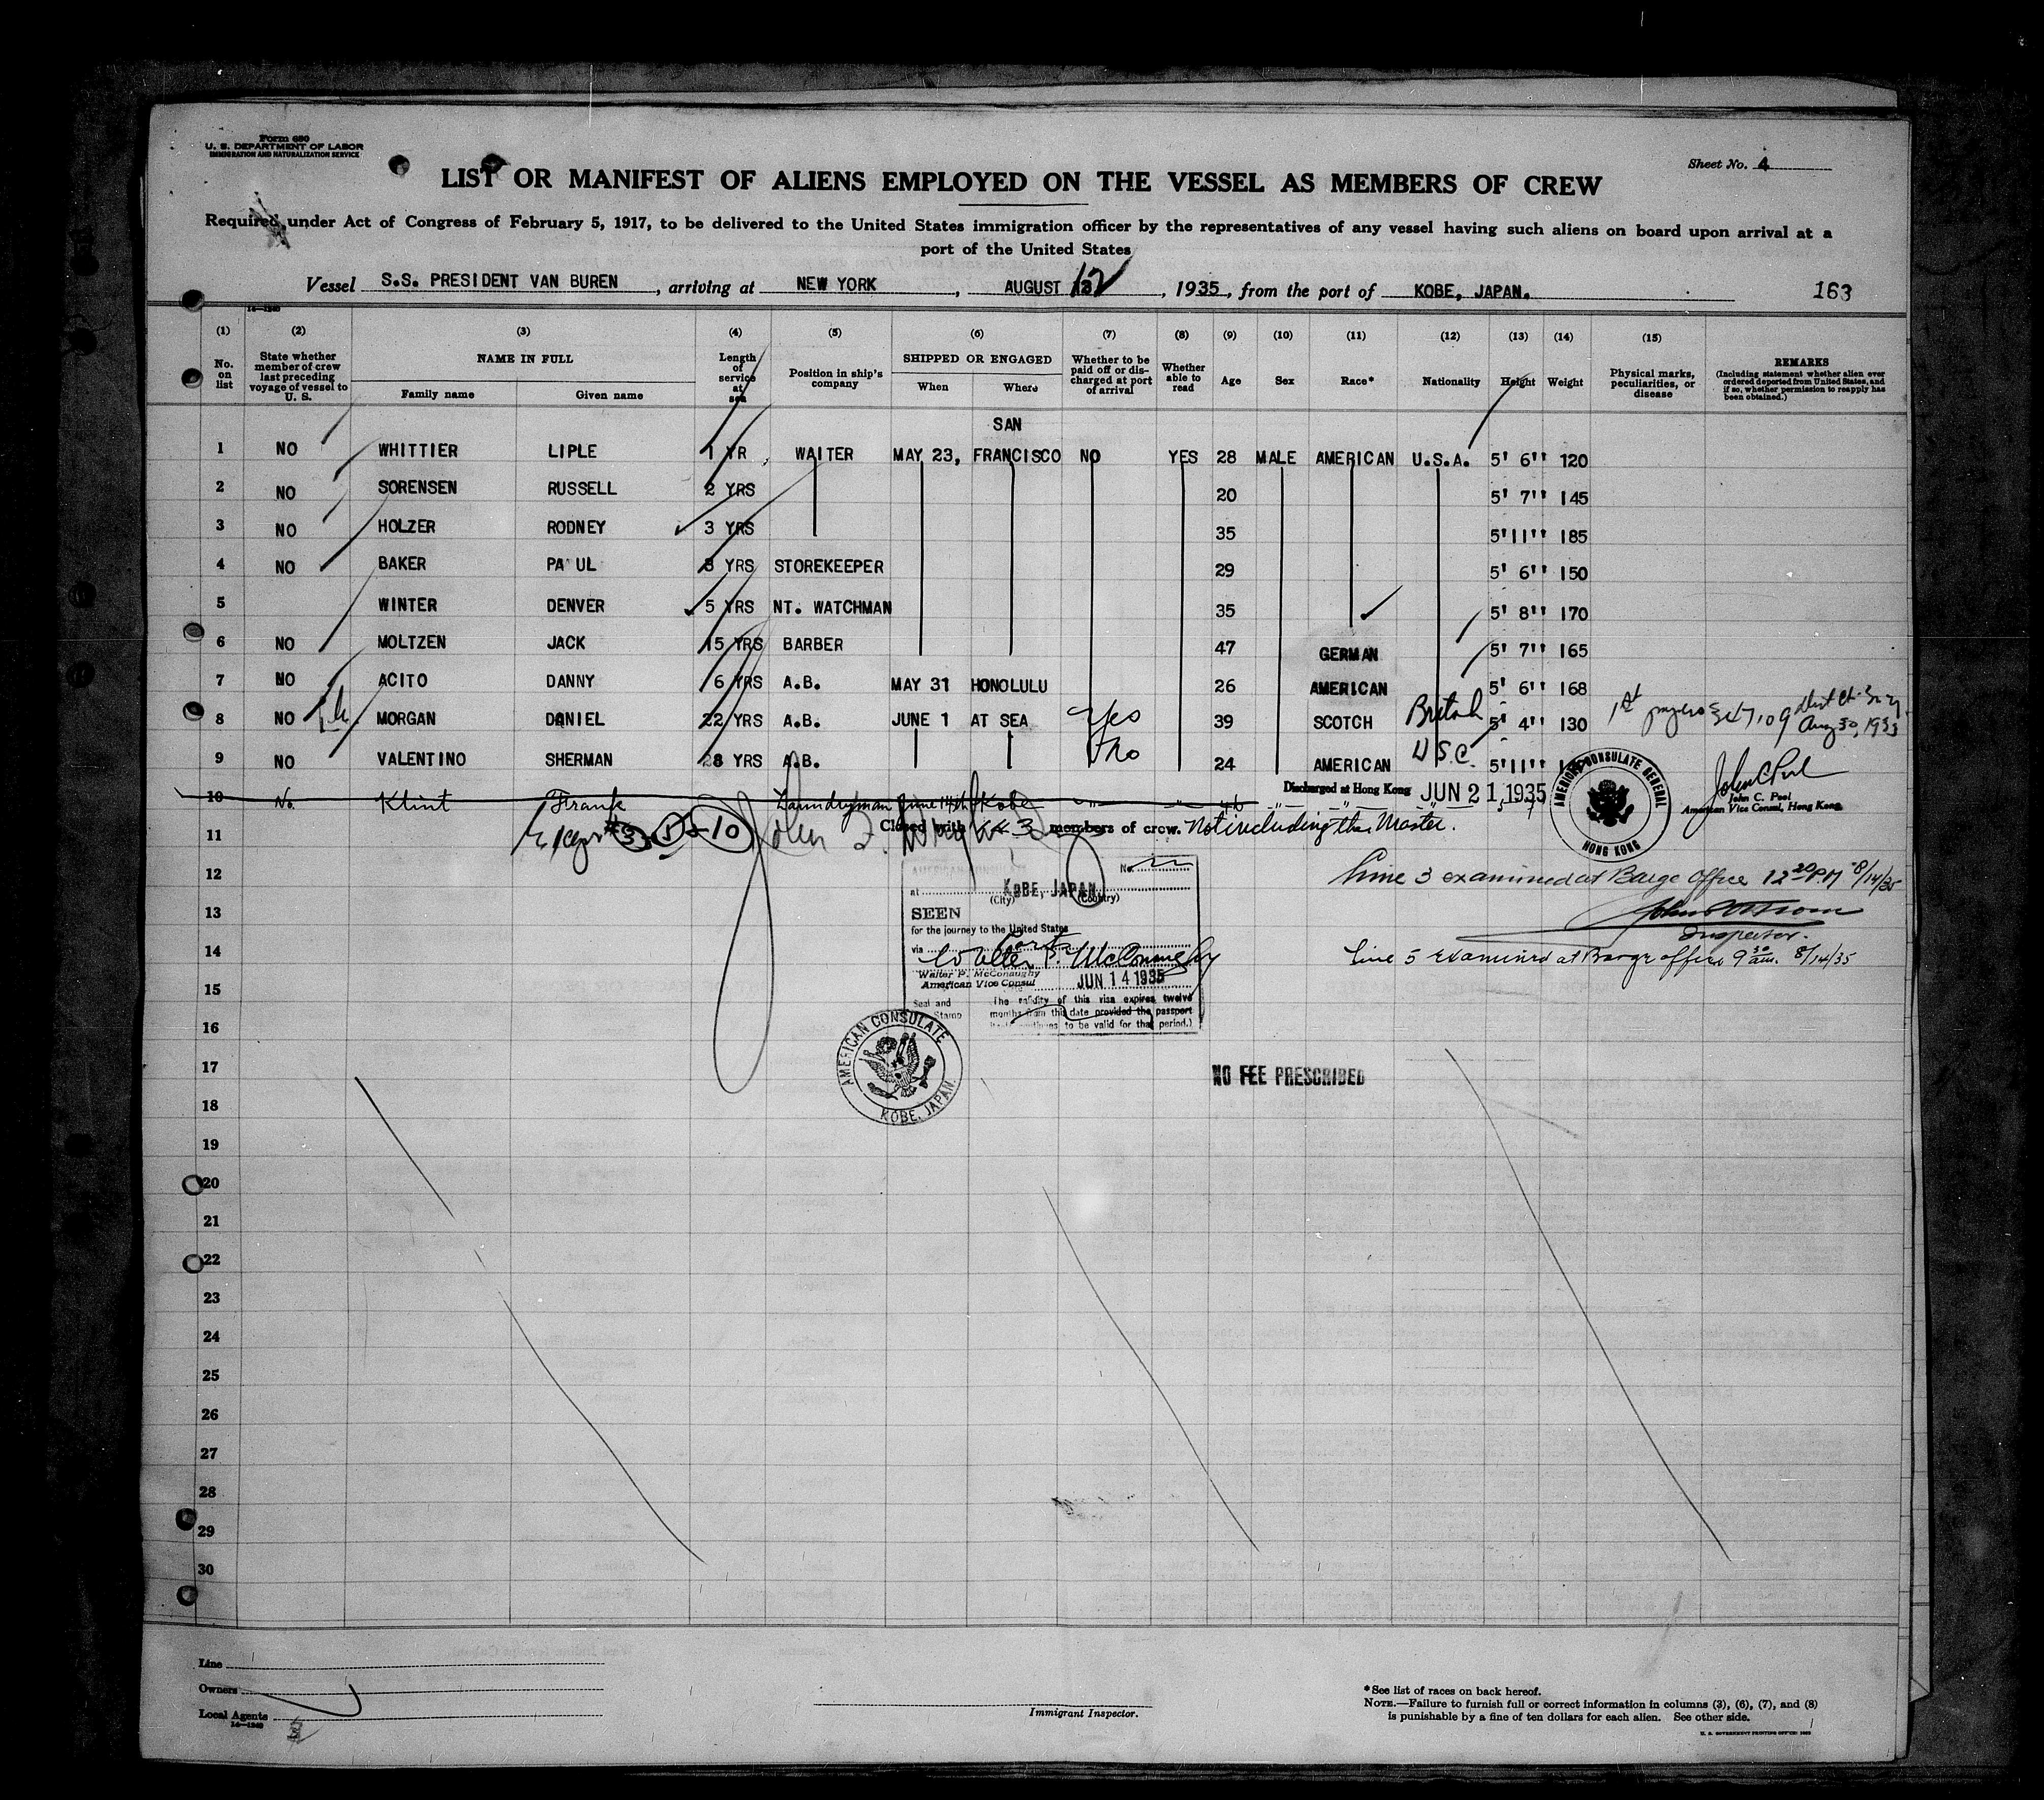 Form 680
U. S. DEPARTMENT OF LABOR
IMMIGRATION AND NATURALIZATION SERVICE
Sheet No. 4
LIST OR MANIFEST OF ALIENS EMPLOYED ON THE VESSEL AS MEMBERS OF CREW
Required under Act of Congress of February 5, 1917, to be delivered to the United States immigration officer by the representatives of any vessel having such aliens on board upon arrival at a
port of the United States
Vessel S.S. PRESIDENT VAN BUREN, arriving at NEW YORK, AUGUST 12, 1935, from the port of KOBE, JAPAN. 163
(1) (2) (3) (4) (5) (6) (7) (8) (9) (10) (11) (12) (13) (14) (15)
No. on list
State whether member of crew last preceding voyage of vessel to U. S.
NAME IN FULL
Family name Given name
Length of service at sea
Position in ship's company
SHIPPED OR ENGAGED
When Where
Whether to be paid off or discharged at port of arrival
Whether able to read
Age
Sex
Race*
Nationality
Height
Weight
Physical marks, peculiarities, or disease
REMARKS
(Including statement whether alien ever ordered deported from United States, and if so, whether permission to reapply has been obtained.)
SAN
1 NO WHITTIER LIPLE 1 YR WAITER MAY 23, FRANCISCO NO YES 28 MALE AMERICAN U.S.A. 5' 6'' 120
2 NO SORENSEN RUSSELL 2 YRS 20 5' 7'' 145
3 NO HOLZER RODNEY 3 YRS 35 5'11'' 185
4 NO BAKER PAUL YRS STOREKEEPER 29 5' 6'' 150
5 WINTER DENVER 5 YRS NT. WATCHMAN 35 5' 8'' 170
6 NO MOLTZEN JACK 15 YRS BARBER 47 GERMAN 5' 7'' 165
7 NO ACITO DANNY 6 YRS A.B. MAY 31 HONOLULU 26 AMERICAN 5' 6'' 168
8 NO MORGAN DANIEL 22 YRS A.B. JUNE 1 AT SEA Yes 39 SCOTCH British 5' 4'' 130 1st papers Aug 30, 1933
9 NO VALENTINO SHERMAN 8 YRS A.B. No 24 AMERICAN U.S.C. 5'11''
10 No. Klint Frank Laundryman June 14th Kobe
Discharged at Hong Kong JUN 21, 1935
AMERICAN CONSULATE GENERAL
HONG KONG
John C. Pool
John C. Pool
American Vice Consul, Hong Kong
11 Closed with members of crew. Not including the Master.
12 Line 3 examined at Barge Office 12 30 P.M 8/14/35
No.
at KOBE, JAPAN
(City) (Country)
13
SEEN
Inspector.
for the journey to the United States
14 Line 5 examined at Barge office 9 30 am. 8/14/35
via
Walter P. McConaughy
Walter P. McConaughy
American Vice Consul JUN 14 1935
15
Seal and Stamp
The validity of this visa expires twelve
months from this date provided the passport
continues to be valid for that period.)
16
AMERICAN CONSULATE
KOBE, JAPAN.
17 NO FEE PRESCRIBED
18
19
20
21
22
23
24
25
26
27
28
29
30
Line
Owners
Local Agents
Immigrant Inspector.
*See list of races on back hereof.
NOTE.—Failure to furnish full or correct information in columns (3), (6), (7), and (8)
is punishable by a fine of ten dollars for each alien. See other side.